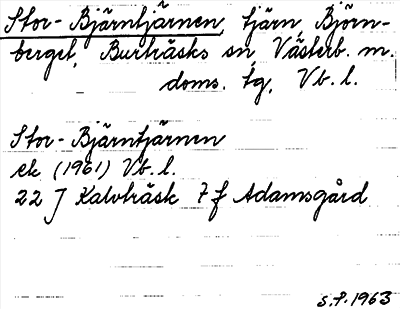 Stor-Bjärntjärnen, tjärn, Björn-
berget, Burträsks sn, Västerb. m.
doms. tg, Vb. l.
Stor-Bjärntjärnen
ek (1961) Vb. l.
22 J Kalvträsk 7 f Adamsgård
S.P. 1963